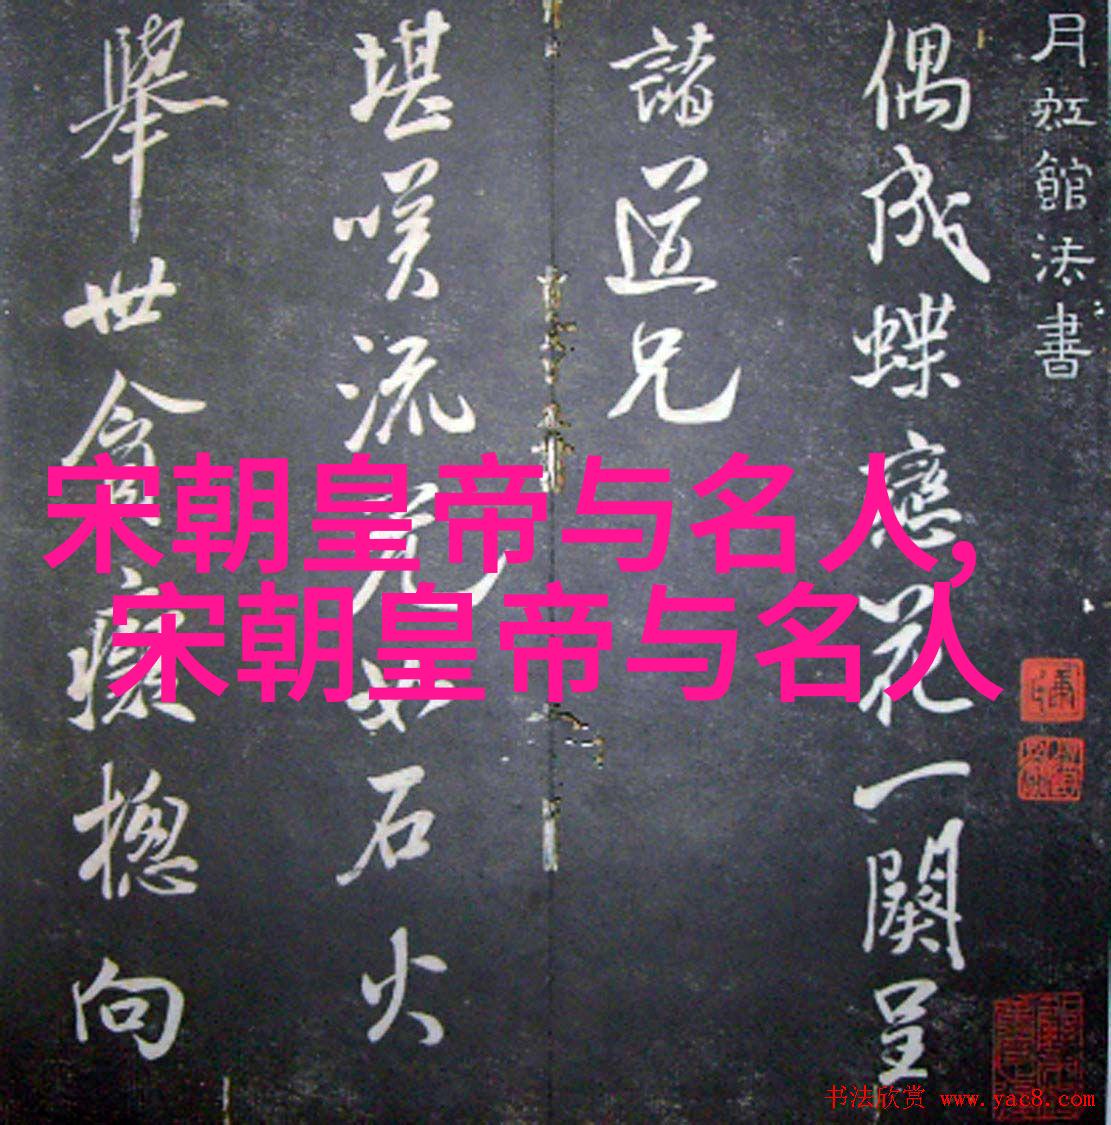 月虹館法書
偶成蝶戀花一闋呈
諸道兄
堪咲流光如石火
舉世貪癡揔向
宋朝皇帝与名人,
宋朝皇帝与名人
书法欣赏 www.yac8.com